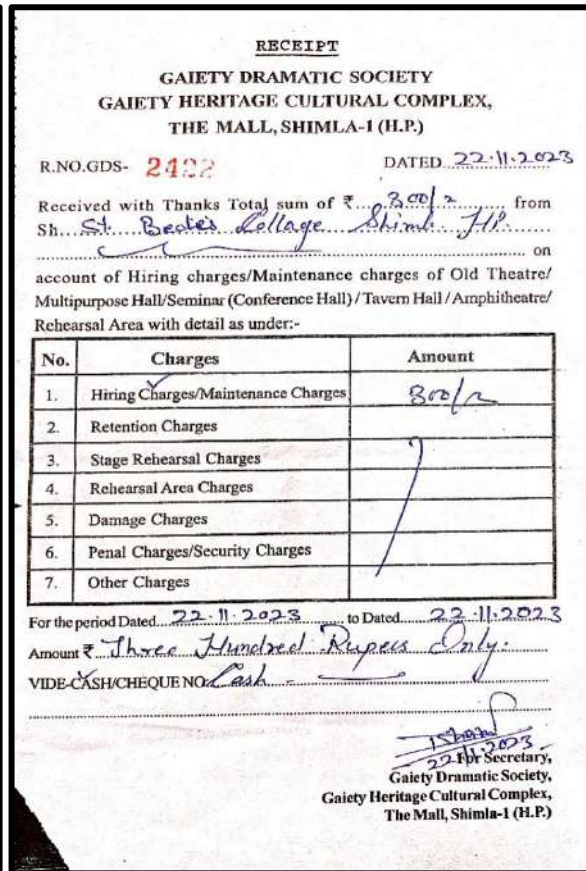 RECEIPT
GAIETY DRAMATIC SOCIETY
GAIETY HERITAGE CULTURAL COMPLEX,
THE MALL, SHIMLA-1 (H.P.)
R.NO.GDS- DATED 22.11.2023
Received with Thanks Total sum of ₹ 300/- from
Sh. St. Bede's Collage HP.
on
account of Hiring charges/Maintenance charges of Old Theatre/
Multipurpose Hall/Seminar (Conference Hall) / Tavern Hall / Amphitheatre/
Rehearsal Area with detail as under:-
No. Charges Amount
1. Hiring Charges/Maintenance Charges 300/-
2. Retention Charges
3. Stage Rehearsal Charges
4. Rehearsal Area Charges
5. Damage Charges
6. Penal Charges/Security Charges
7. Other Charges
For the period Dated 22.11.2023 to Dated 22.11.2023
Amount ₹ Three Hundred Rupees Only.
VIDE-CASH/CHEQUE NO. Cash
22.11.2023
For Secretary,
Gaiety Dramatic Society,
Gaiety Heritage Cultural Complex,
The Mall, Shimla-1 (H.P.)